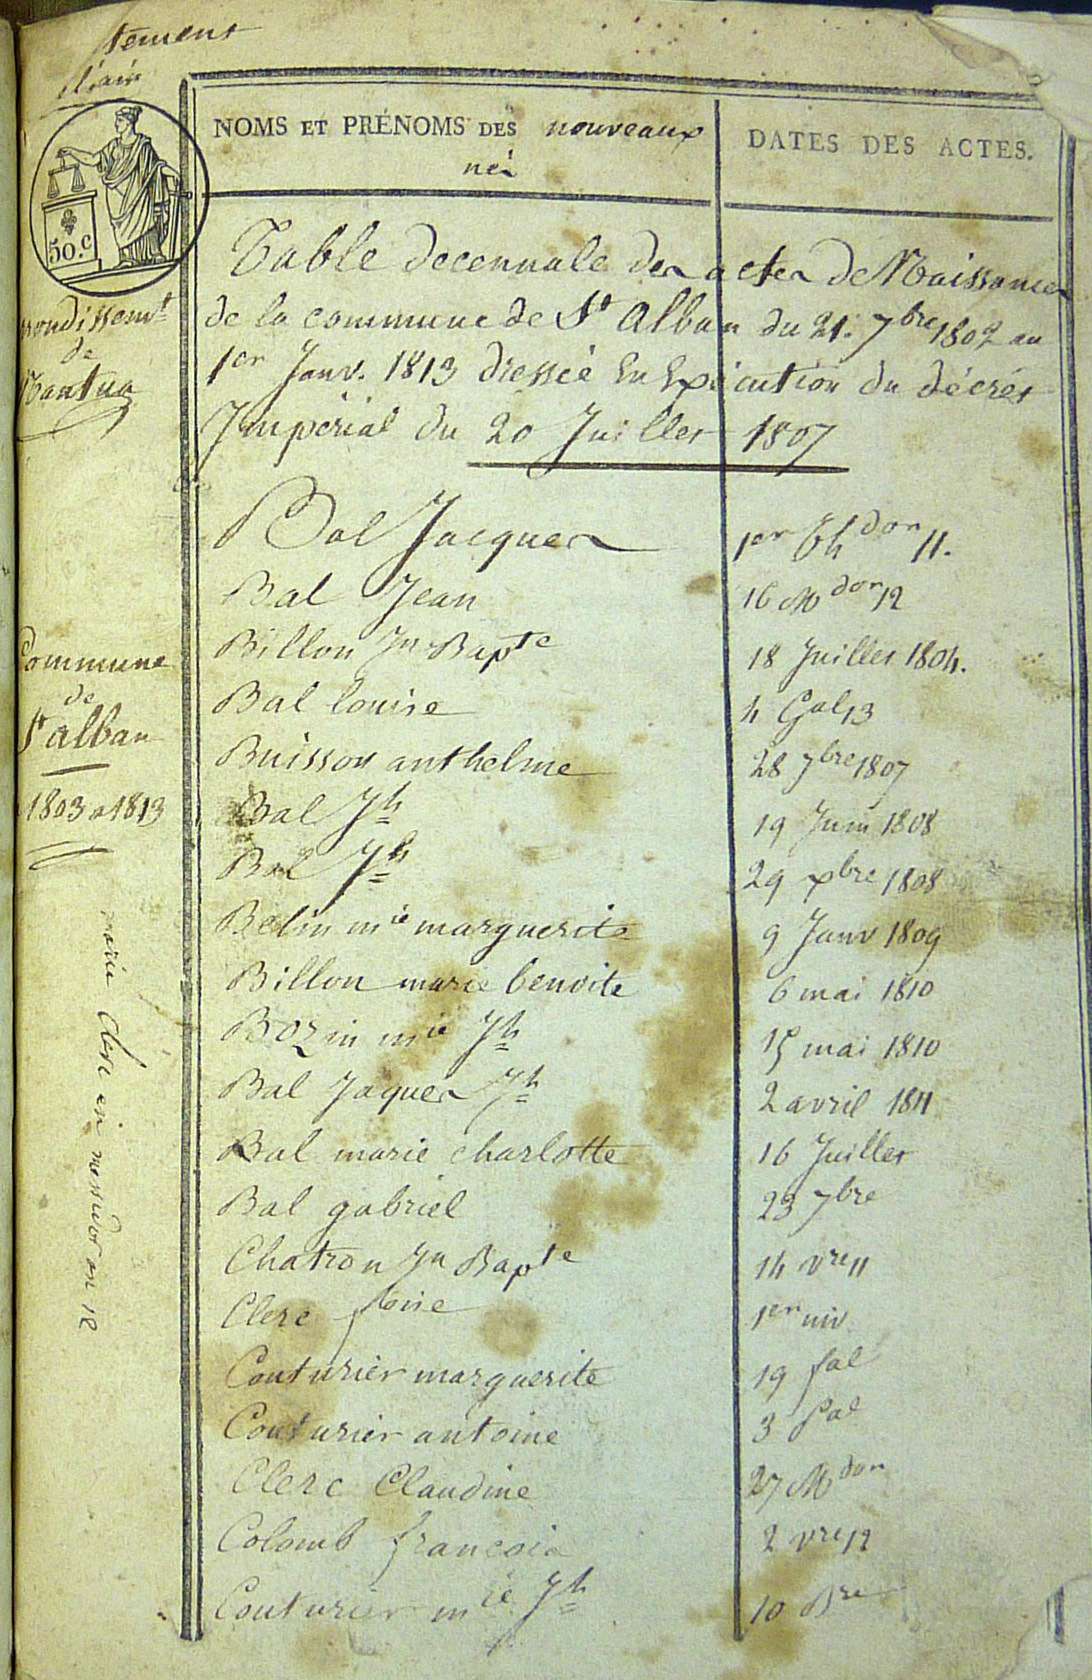 tement
l'ain
50.c
NOMS ET PRÉNOMS DES nouveaux
nés
DATES DES ACTES.
Table decennale des actes de Naissances
de la commune de St Alban du 21. 7bre 1802 au
1er Janv. 1813 dressée En Exécution du décret
Impérial du 20 Juillet 1807
rondissemt
de
Nantua
Commune
de
St alban
1803 a 1813
marie Clerc en messidor an 12
Bal Jacques 1er th dor 11.
Bal Jean 16 M dor 12
Billon Jn Bapte 18 Juillet 1804.
Bal louise 4 Gal 13
Buisson anthelme 28 7bre 1807
Bal Jh 19 Juin 1808
Bal Jh 29 xbre 1808
Belin mie marguerite 9 Janv 1809
Billon marie benoite 6 mai 1810
Bozin mie Jh 15 mai 1810
Bal Jaques Jh 2 avril 1811
Bal marie charlotte 16 Juillet
Bal gabriel 23 7bre
Chatron Jn Bapte 14 vre 11
Clerc 1er niv
Couturier marguerite 19 fal
Couturier antoine 3 Pal
Clerc Claudine 27 M dor
Colomb francois 2 vre 12
Couturier mie Jh 10 Bre